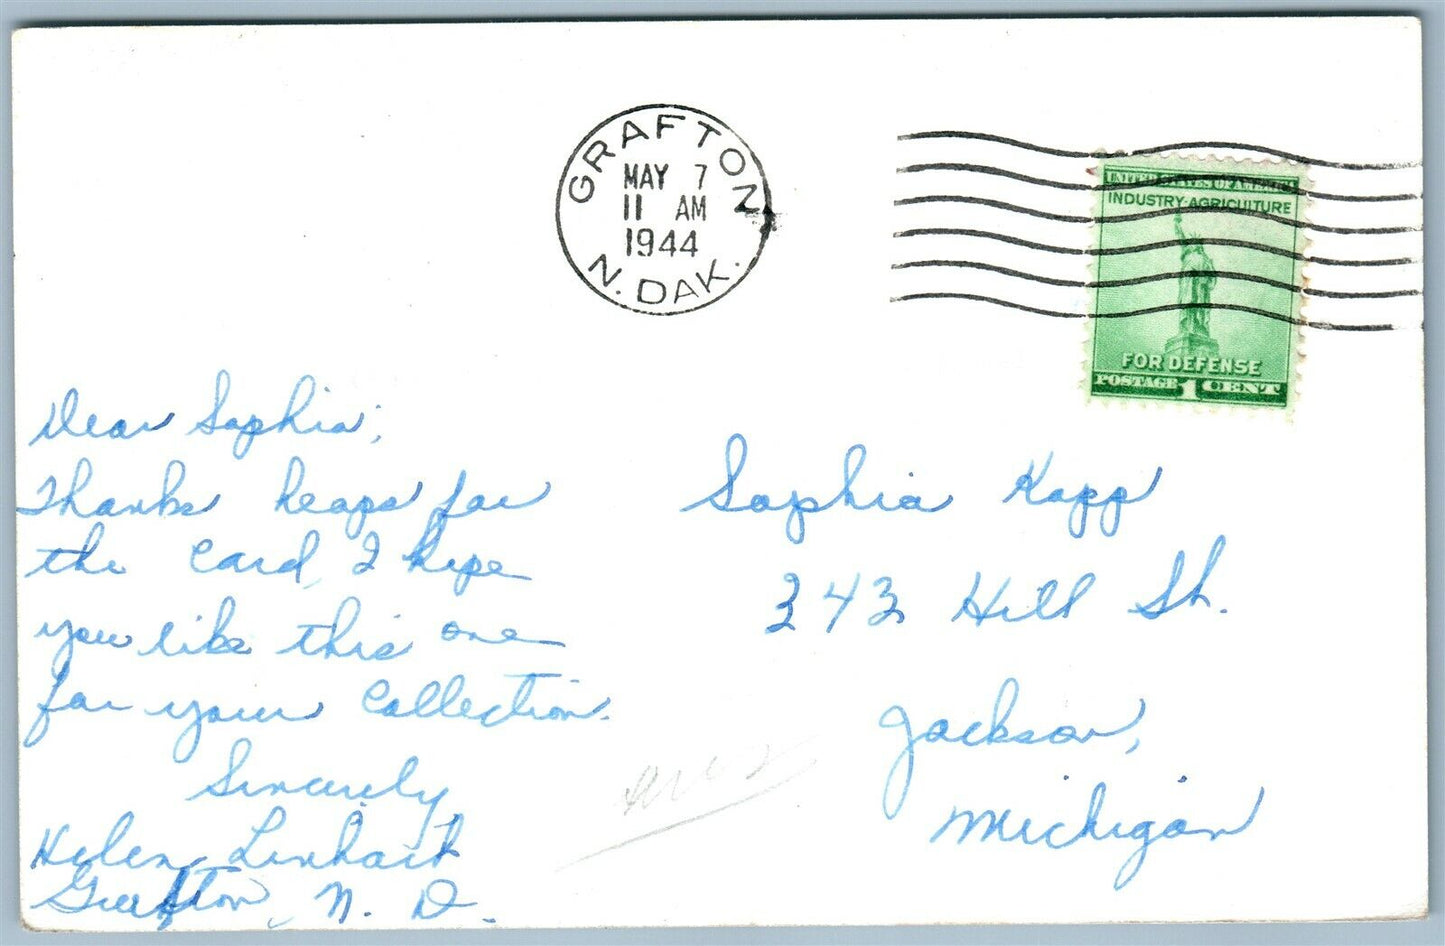 GRAFTON
MAY 7
11 AM
1944
N. DAK.
UNITED STATES OF AMERICA
INDUSTRY·AGRICULTURE
FOR DEFENSE
POSTAGE 1 CENT
Dear Sophia;
Thanks heaps for
the card, I hope
you like this one
for your collection.
Sincerely
Helen Linhart
Grafton, N. D.
Sophia Kopp
343 Hill St.
Jackson,
Michigan